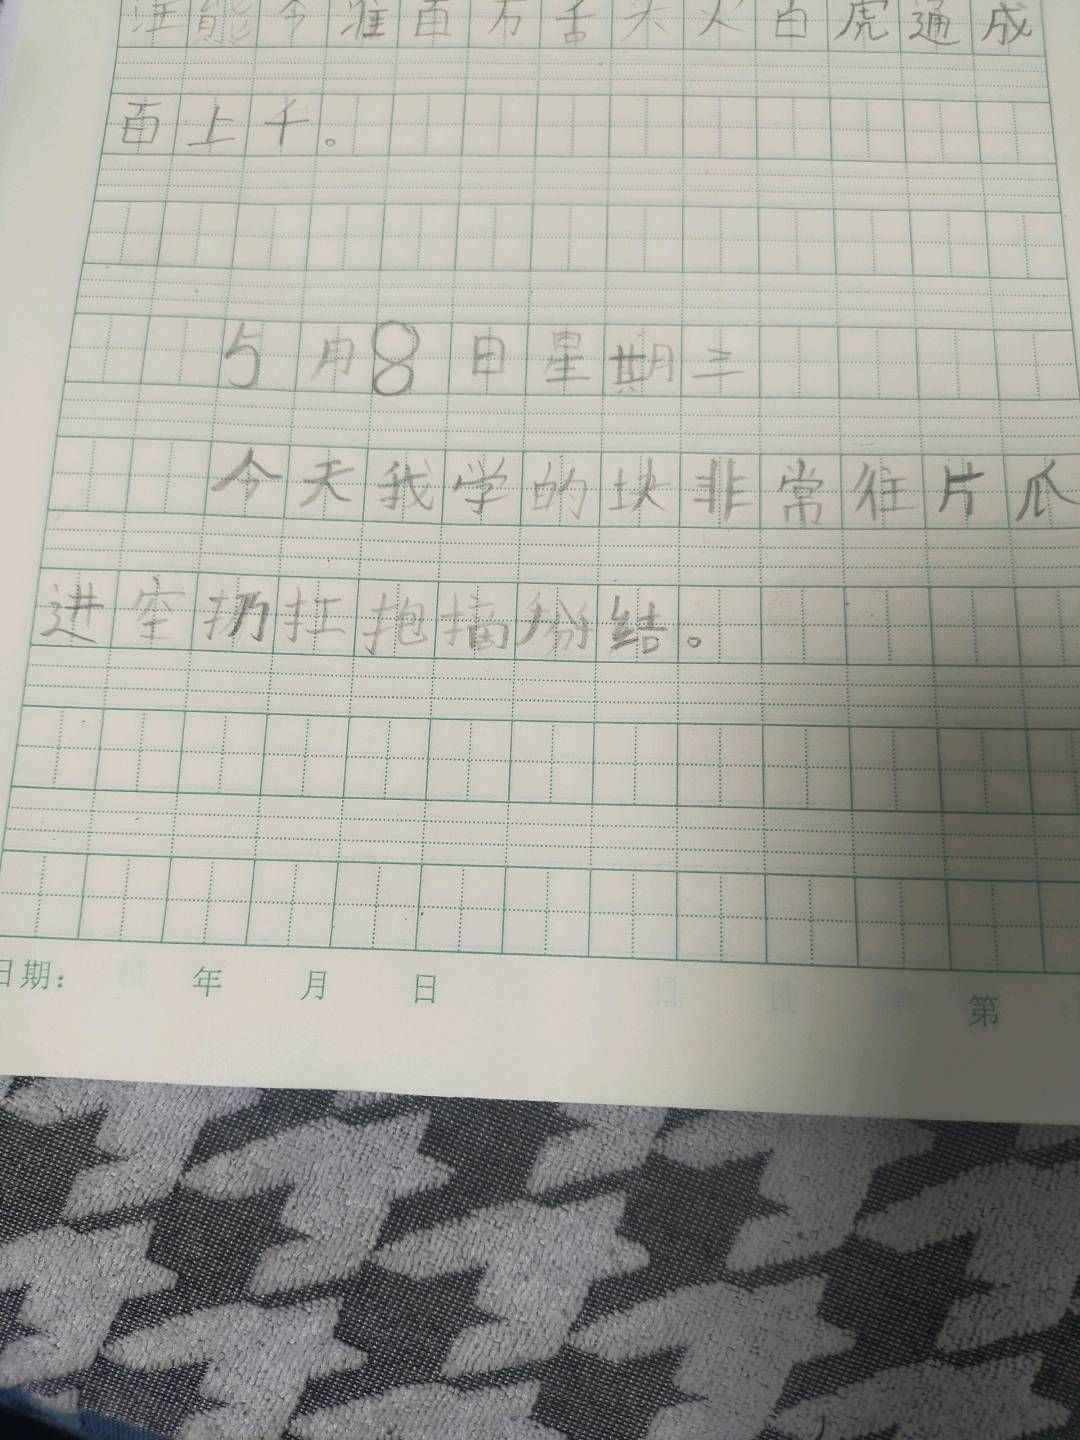 能今准百万舌头火白虎通成
百上千。
5月8日星期三
今天我学的块非常往片爪
进空扔扛抱摘纷结。
日期： 年 月 日 第